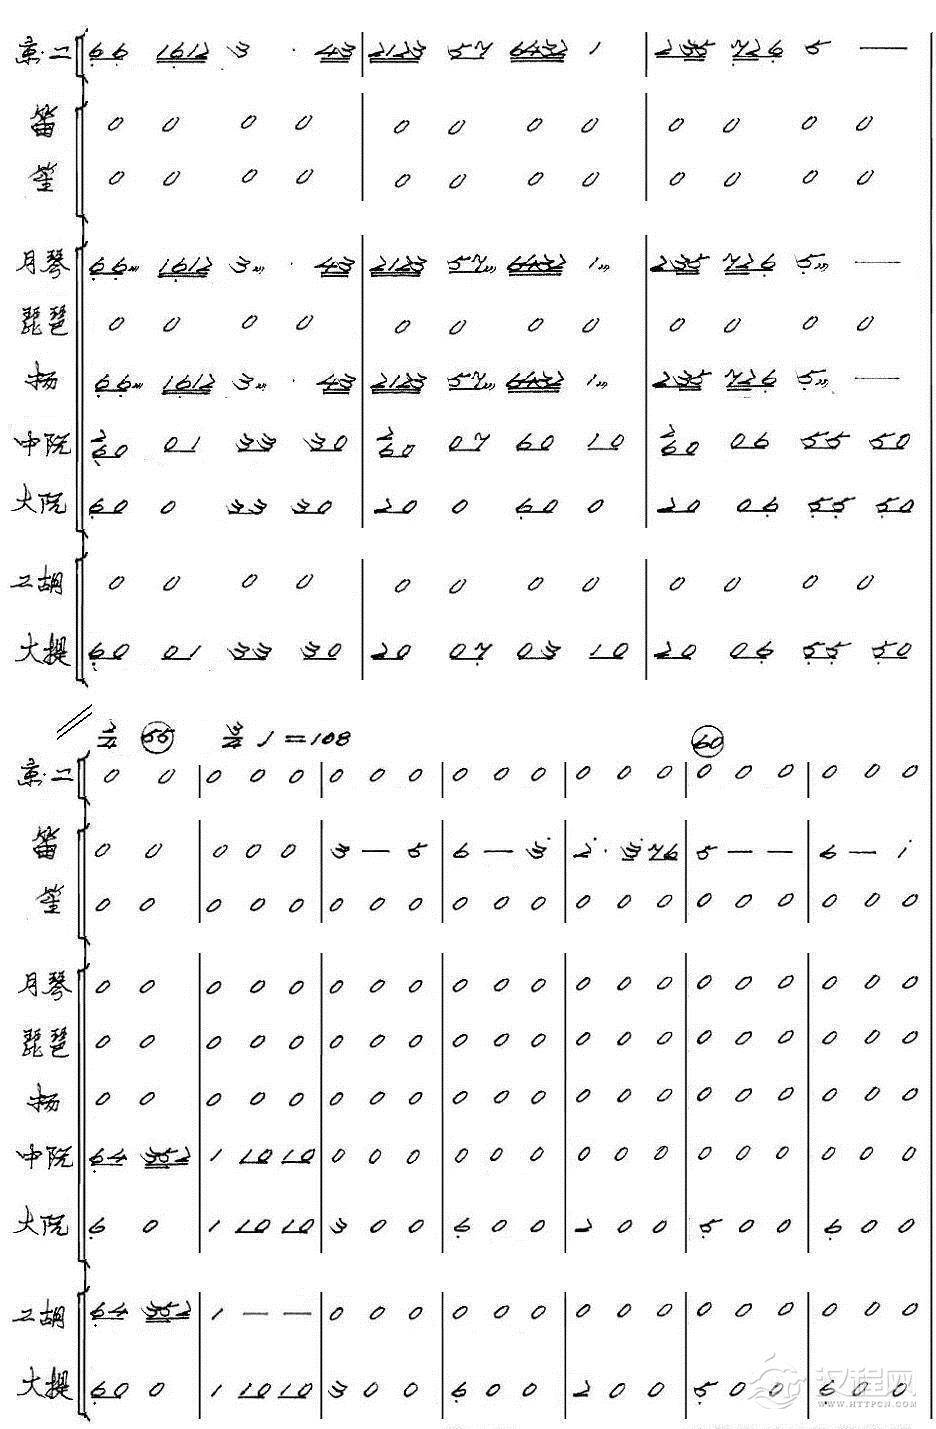 京·二 66 1612 3 · 43 | 2123 57 6432 1 | 235 726 5 —
笛 0 0 0 0 | 0 0 0 0 | 0 0 0 0
笙 0 0 0 0 | 0 0 0 0 | 0 0 0 0
月琴 66 1612 3 · 43 | 2123 57 6432 1 | 235 726 5 —
琵琶 0 0 0 0 | 0 0 0 0 | 0 0 0 0
扬 66 1612 3 · 43 | 2123 57 6432 1 | 235 726 5 —
中阮 60 01 33 30 | 60 07 60 10 | 60 06 55 50
大阮 60 0 33 30 | 20 0 60 0 | 20 06 55 50
二胡 0 0 0 0 | 0 0 0 0 | 0 0 0 0
大提 60 01 33 30 | 20 07 03 10 | 20 06 55 50
2/4 55 3/4 ♩=108 60
京·二 0 0 | 0 0 0 | 0 0 0 | 0 0 0 | 0 0 0 | 0 0 0 | 0 0 0
笛 0 0 | 0 0 0 | 3 — 5 | 6 — 3̇ | 2̇ · 3̇76 | 5 — — | 6 — i
笙 0 0 | 0 0 0 | 0 0 0 | 0 0 0 | 0 0 0 | 0 0 0 | 0 0 0
月琴 0 0 | 0 0 0 | 0 0 0 | 0 0 0 | 0 0 0 | 0 0 0 | 0 0 0
琵琶 0 0 | 0 0 0 | 0 0 0 | 0 0 0 | 0 0 0 | 0 0 0 | 0 0 0
扬 0 0 | 0 0 0 | 0 0 0 | 0 0 0 | 0 0 0 | 0 0 0 | 0 0 0
中阮 64 352 | 1 10 10 | 0 0 0 | 0 0 0 | 0 0 0 | 0 0 0 | 0 0 0
大阮 6 0 | 1 10 10 | 3 0 0 | 6 0 0 | 2 0 0 | 5 0 0 | 6 0 0
二胡 64 352 | 1 — — | 0 0 0 | 0 0 0 | 0 0 0 | 0 0 0 | 0 0 0
大提 60 0 | 1 10 10 | 3 0 0 | 6 0 0 | 2 0 0 | 5 0 0 | 6 0 0
汉程网
WWW.HTTPCN.COM